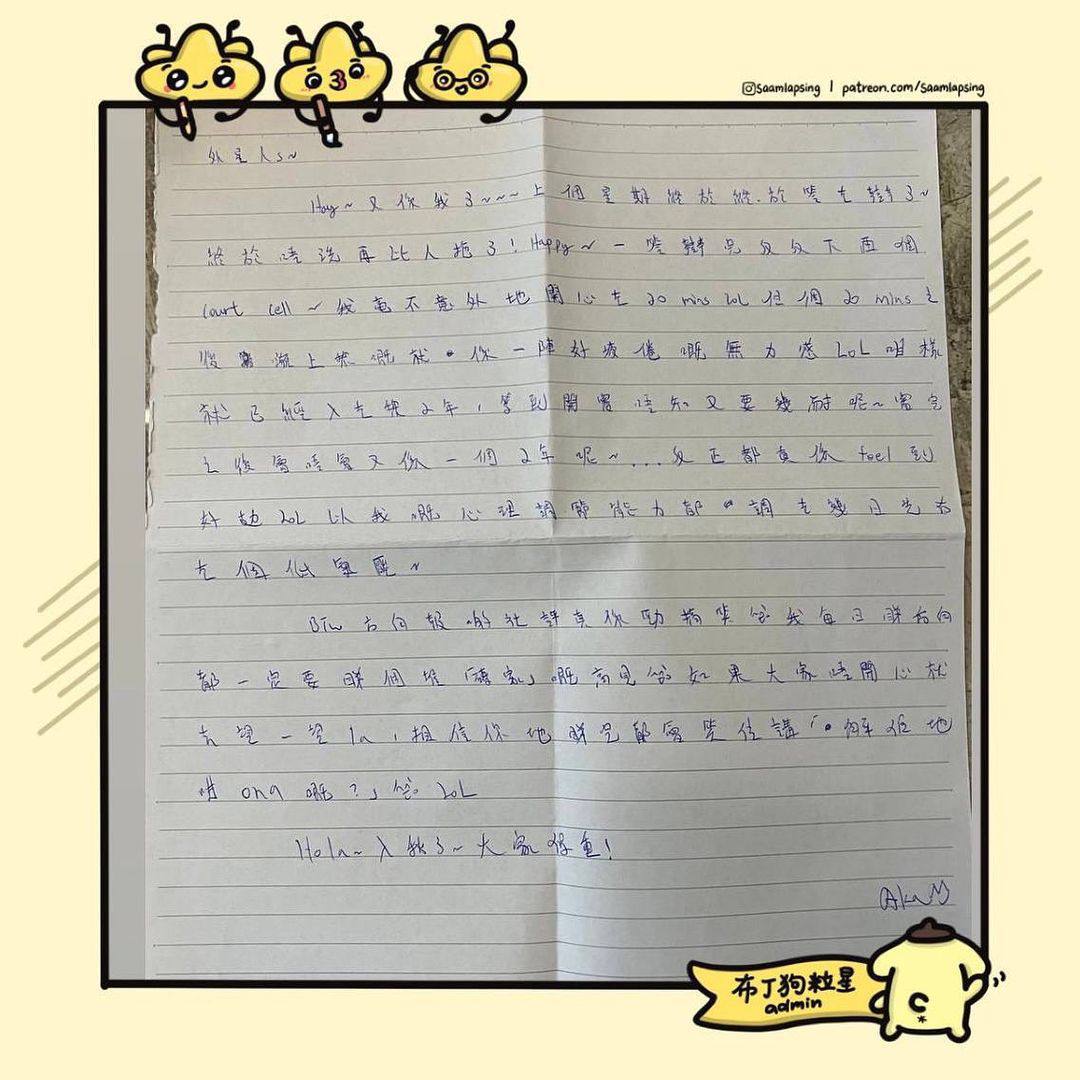 saamlapsing | patreon.com/saamlapsing
外星人s~
Hay~又係我了~~~上個星期終於終於答左辯了~
終於唔洗再比人拖了！Happy~一答辯完返返下面個
Court Cell~我毫不意外地開心左20 mins LoL但個20 mins之
後漸上黎嘅就係一陣好疲倦嘅無力感LoL咁樣
就已經入左黎2年，等到開審唔知又要幾耐呢~審完
之後會唔會又係一個2年呢~...反正都真係feel到
好攰LoL以我嘅心理調節能力都調左幾日先
左個低氣壓~
BTW方向報啲社評真係勁搞笑爺我每日睇方向
都一定要睇個堆「專家」嘅高見爺如果大家唔開心就
去望一望la，相信你地睇完都會笑住講「點解佢地
咁on9嘅？」爺LoL
Hola~入我了~大家保重！
布丁狗粒星
admin